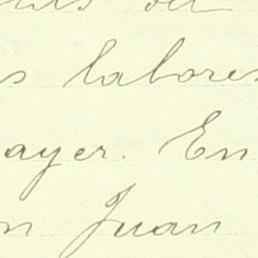 s labores
ayer. En
n Juan